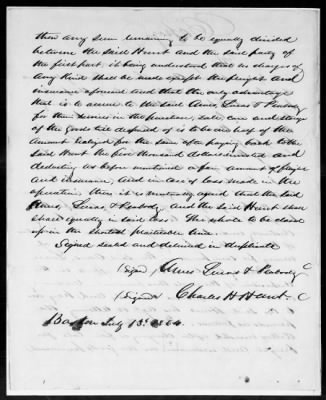 then any sum remaining to be equally divided
between the said Hunt and the said party of
the first part, it being understood that no charges of
any kind shall be made except the freight and
insurance aforesaid and that the only advantage
that is to accrue to the said Ames, Lucas & Peabody
for their services in the purchase, sale, care and storage
of the Goods till disposed of is to be one half of the
amount realized for the same after paying back to the
said Hunt the five thousand dollars invested and
deducting as before mentioned after amount of freight
and insurance, and in case of loss made in the
operation then it is mutually agreed that the said
Ames, Lucas & Peabody and the said Hunt shall
share equally in said loss. The whole to be closed
up in the shortest practicable time.
Signed sealed and delivered in duplicate
(Signed) Ames Lucas & Peabody
(Signed) Charles H Hunt
Boston July 13. 1864.